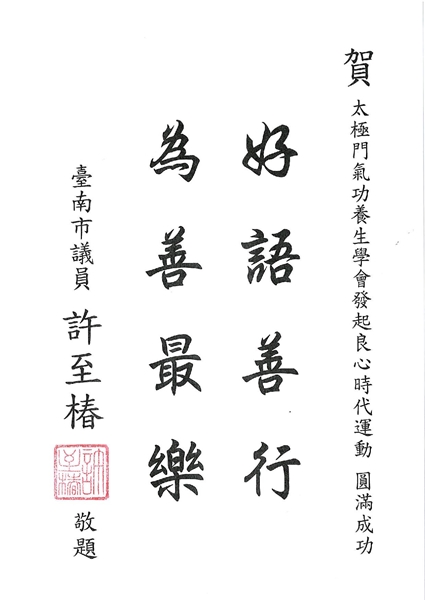 賀 太極門氣功養生學會發起良心時代運動 圓滿成功
好語善行
為善最樂
臺南市議員 許至椿 敬題
許至椿